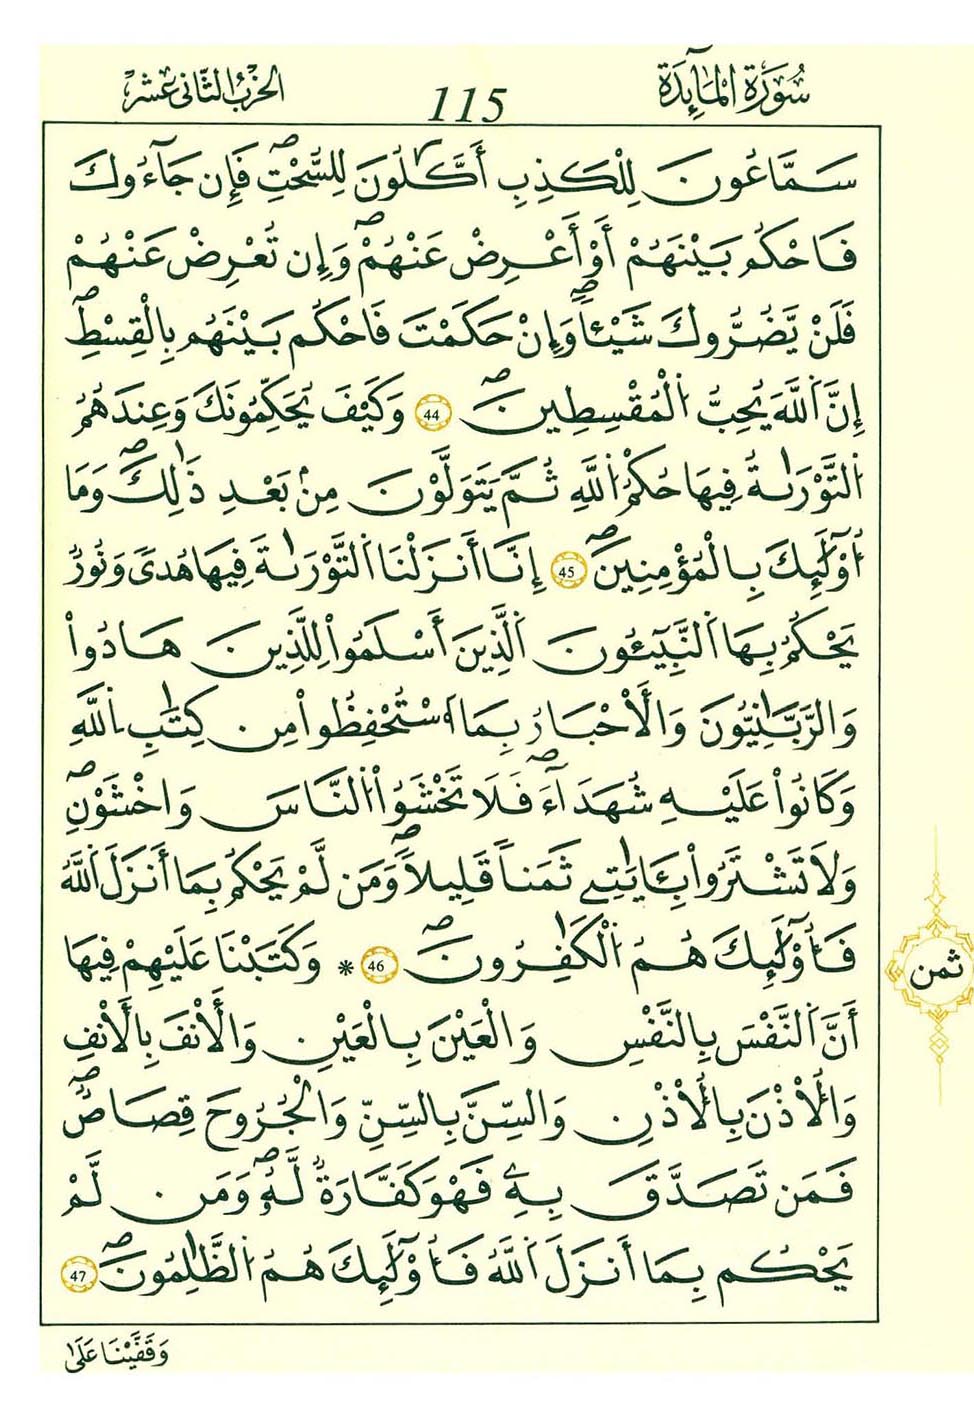 سُورَةُ الْمَآئِدَةِ
115
الحِزْبُ الثَّانِي عَشَرَ
سَمَّٰعُونَ لِلْكَذِبِ أَكَّٰلُونَ لِلسُّحْتِۖ فَإِن جَآءُوكَ
فَاحْكُم بَيْنَهُمْ أَوْ أَعْرِضْ عَنْهُمْۖ وَإِن تُعْرِضْ عَنْهُمْ
فَلَنْ يَّضُرُّوكَ شَيْـٔاًۖ وَإِنْ حَكَمْتَ فَاحْكُم بَيْنَهُم بِالْقِسْطِۖ
إِنَّ اَ۬للَّهَ يُحِبُّ اُ۬لْمُقْسِطِينَۖ 44 وَكَيْفَ يُحَكِّمُونَكَ وَعِندَهُمُ
اُ۬لتَّوْر۪ىٰةُ فِيهَا حُكْمُ اُ۬للَّهِ ثُمَّ يَتَوَلَّوْنَ مِنۢ بَعْدِ ذَٰلِكَۖ وَمَا
أُوْلَٰٓئِكَ بِالْمُؤْمِنِينَۖ 45 إِنَّا أَنزَلْنَا اَ۬لتَّوْر۪ىٰةَ فِيهَا هُدىً وَنُورٌ
يَحْكُمُ بِهَا اَ۬لنَّبِيٓـُٔونَ اَ۬لَّذِينَ أَسْلَمُواْ لِلَّذِينَ هَادُواْ
وَالرَّبَّٰنِيُّونَ وَالْأَحْبَارُ بِمَا اَ۟سْتُحْفِظُواْ مِن كِتَٰبِ اِ۬للَّهِ
وَكَانُواْ عَلَيْهِ شُهَدَآءَۖ فَلَا تَخْشَوُاْ اُ۬لنَّاسَ وَاخْشَوْنِۖ
وَلَا تَشْتَرُواْ بِـَٔايَٰتِے ثَمَناً قَلِيلاًۖ وَمَن لَّمْ يَحْكُم بِمَا أَنزَلَ اَ۬للَّهُ
فَأُوْلَٰٓئِكَ هُمُ اُ۬لْكَٰفِرُونَۖ 46 * وَكَتَبْنَا عَلَيْهِمْ فِيهَا
أَنَّ اَ۬لنَّفْسَ بِالنَّفْسِ وَالْعَيْنَ بِالْعَيْنِ وَالْأَنفَ بِالْأَنفِ
وَالْأُذْنَ بِالْأُذْنِ وَالسِّنَّ بِالسِّنِّ وَالْجُرُوحَ قِصَاصٌۖ
فَمَن تَصَدَّقَ بِهِۦ فَهُوَ كَفَّارَةٌ لَّهُۥۖ وَمَن لَّمْ
يَحْكُم بِمَا أَنزَلَ اَ۬للَّهُ فَأُوْلَٰٓئِكَ هُمُ اُ۬لظَّٰلِمُونَۖ 47
ثمن
وَقَفَّيْنَا عَلَىٰ